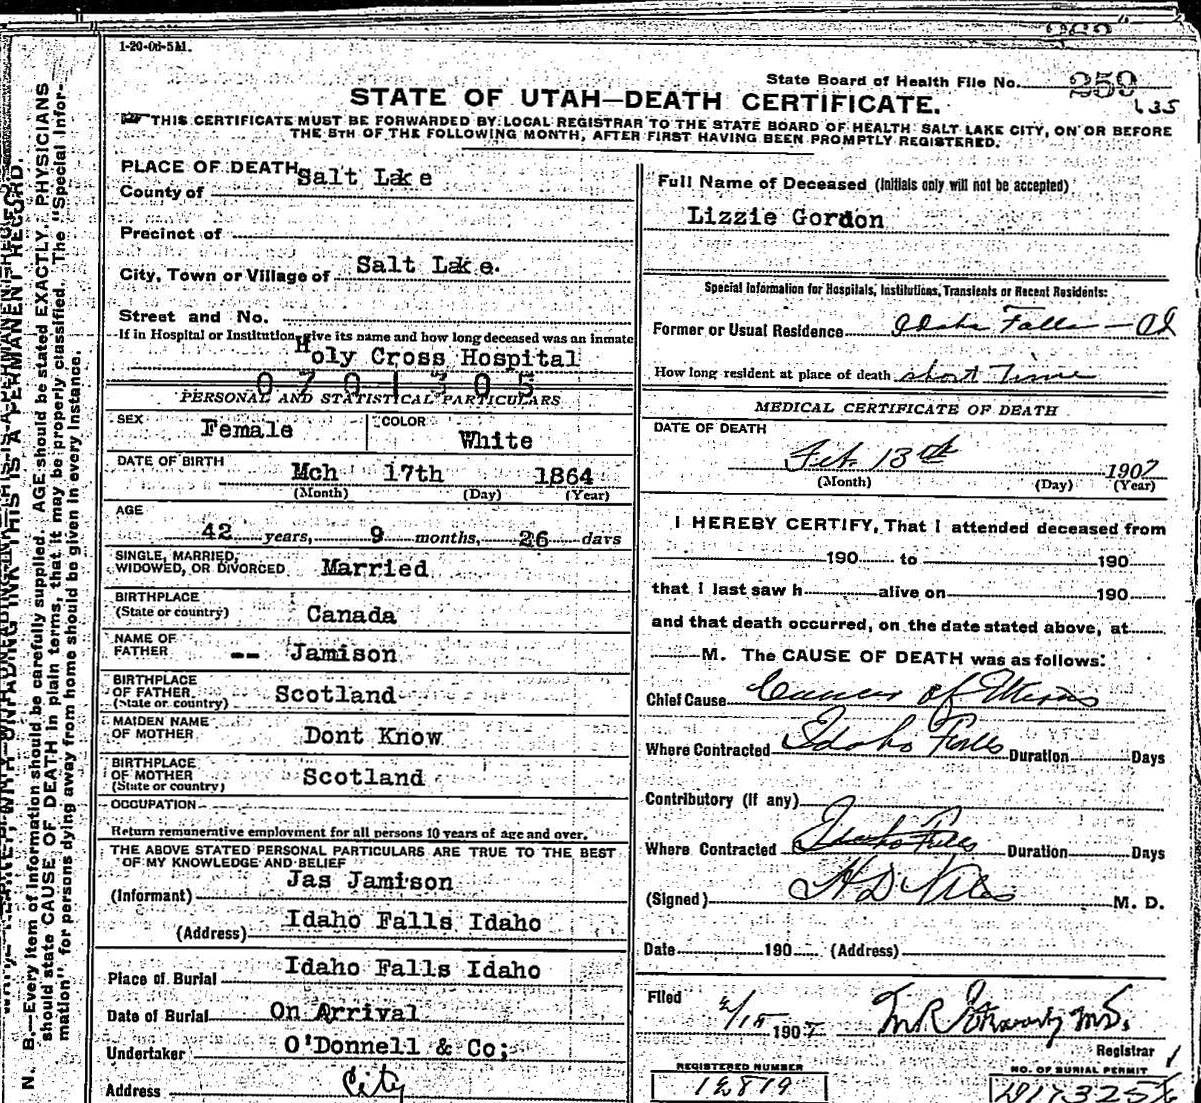 1-20-06-5M.
State Board of Health File No. 259
635
STATE OF UTAH—DEATH CERTIFICATE.
THIS CERTIFICATE MUST BE FORWARDED BY LOCAL REGISTRAR TO THE STATE BOARD OF HEALTH SALT LAKE CITY, ON OR BEFORE
THE 5TH OF THE FOLLOWING MONTH, AFTER FIRST HAVING BEEN PROMPTLY REGISTERED.
PLACE OF DEATH
County of Salt Lake
Precinct of
City, Town or Village of Salt Lake.
Street and No.
If in Hospital or Institution give its name and how long deceased was an inmate
Holy Cross Hospital
0701305
PERSONAL AND STATISTICAL PARTICULARS
SEX Female COLOR White
DATE OF BIRTH Mch 17th 1864
(Month) (Day) (Year)
AGE
42 years, 9 months, 26 days
SINGLE, MARRIED,
WIDOWED, OR DIVORCED Married
BIRTHPLACE
(State or country) Canada
NAME OF
FATHER -- Jamison
BIRTHPLACE
OF FATHER
(State or country) Scotland
MAIDEN NAME
OF MOTHER Dont Know
BIRTHPLACE
OF MOTHER
(State or country) Scotland
OCCUPATION
Return remunerative employment for all persons 10 years of age and over.
THE ABOVE STATED PERSONAL PARTICULARS ARE TRUE TO THE BEST
OF MY KNOWLEDGE AND BELIEF
(Informant) Jas Jamison
(Address) Idaho Falls Idaho
Place of Burial Idaho Falls Idaho
Date of Burial On Arrival
Undertaker O'Donnell & Co;
Address City
Full Name of Deceased (Initials only will not be accepted)
Lizzie Gordon
Special Information for Hospitals, Institutions, Transients or Recent Residents:
Former or Usual Residence Idaho Falls — Id
How long resident at place of death short Time
MEDICAL CERTIFICATE OF DEATH
DATE OF DEATH
Feb. 13th 1907
(Month) (Day) (Year)
I HEREBY CERTIFY, That I attended deceased from
190 to 190
that I last saw h alive on 190
and that death occurred, on the date stated above, at
M. The CAUSE OF DEATH was as follows:
Chief Cause Cancer of Uterus
Where Contracted Idaho Falls Duration Days
Contributory (if any)
Where Contracted Idaho Falls Duration Days
(Signed) H D Niles M. D.
Date 190 (Address)
Filed 2/15 1907 M.D.
Registrar
REGISTERED NUMBER
NO. OF BURIAL PERMIT
N. B.—Every item of information should be carefully supplied. AGE should be stated EXACTLY. PHYSICIANS
should state CAUSE OF DEATH in plain terms, that it may be properly classified. The "Special Infor-
mation" for persons dying away from home should be given in every instance.